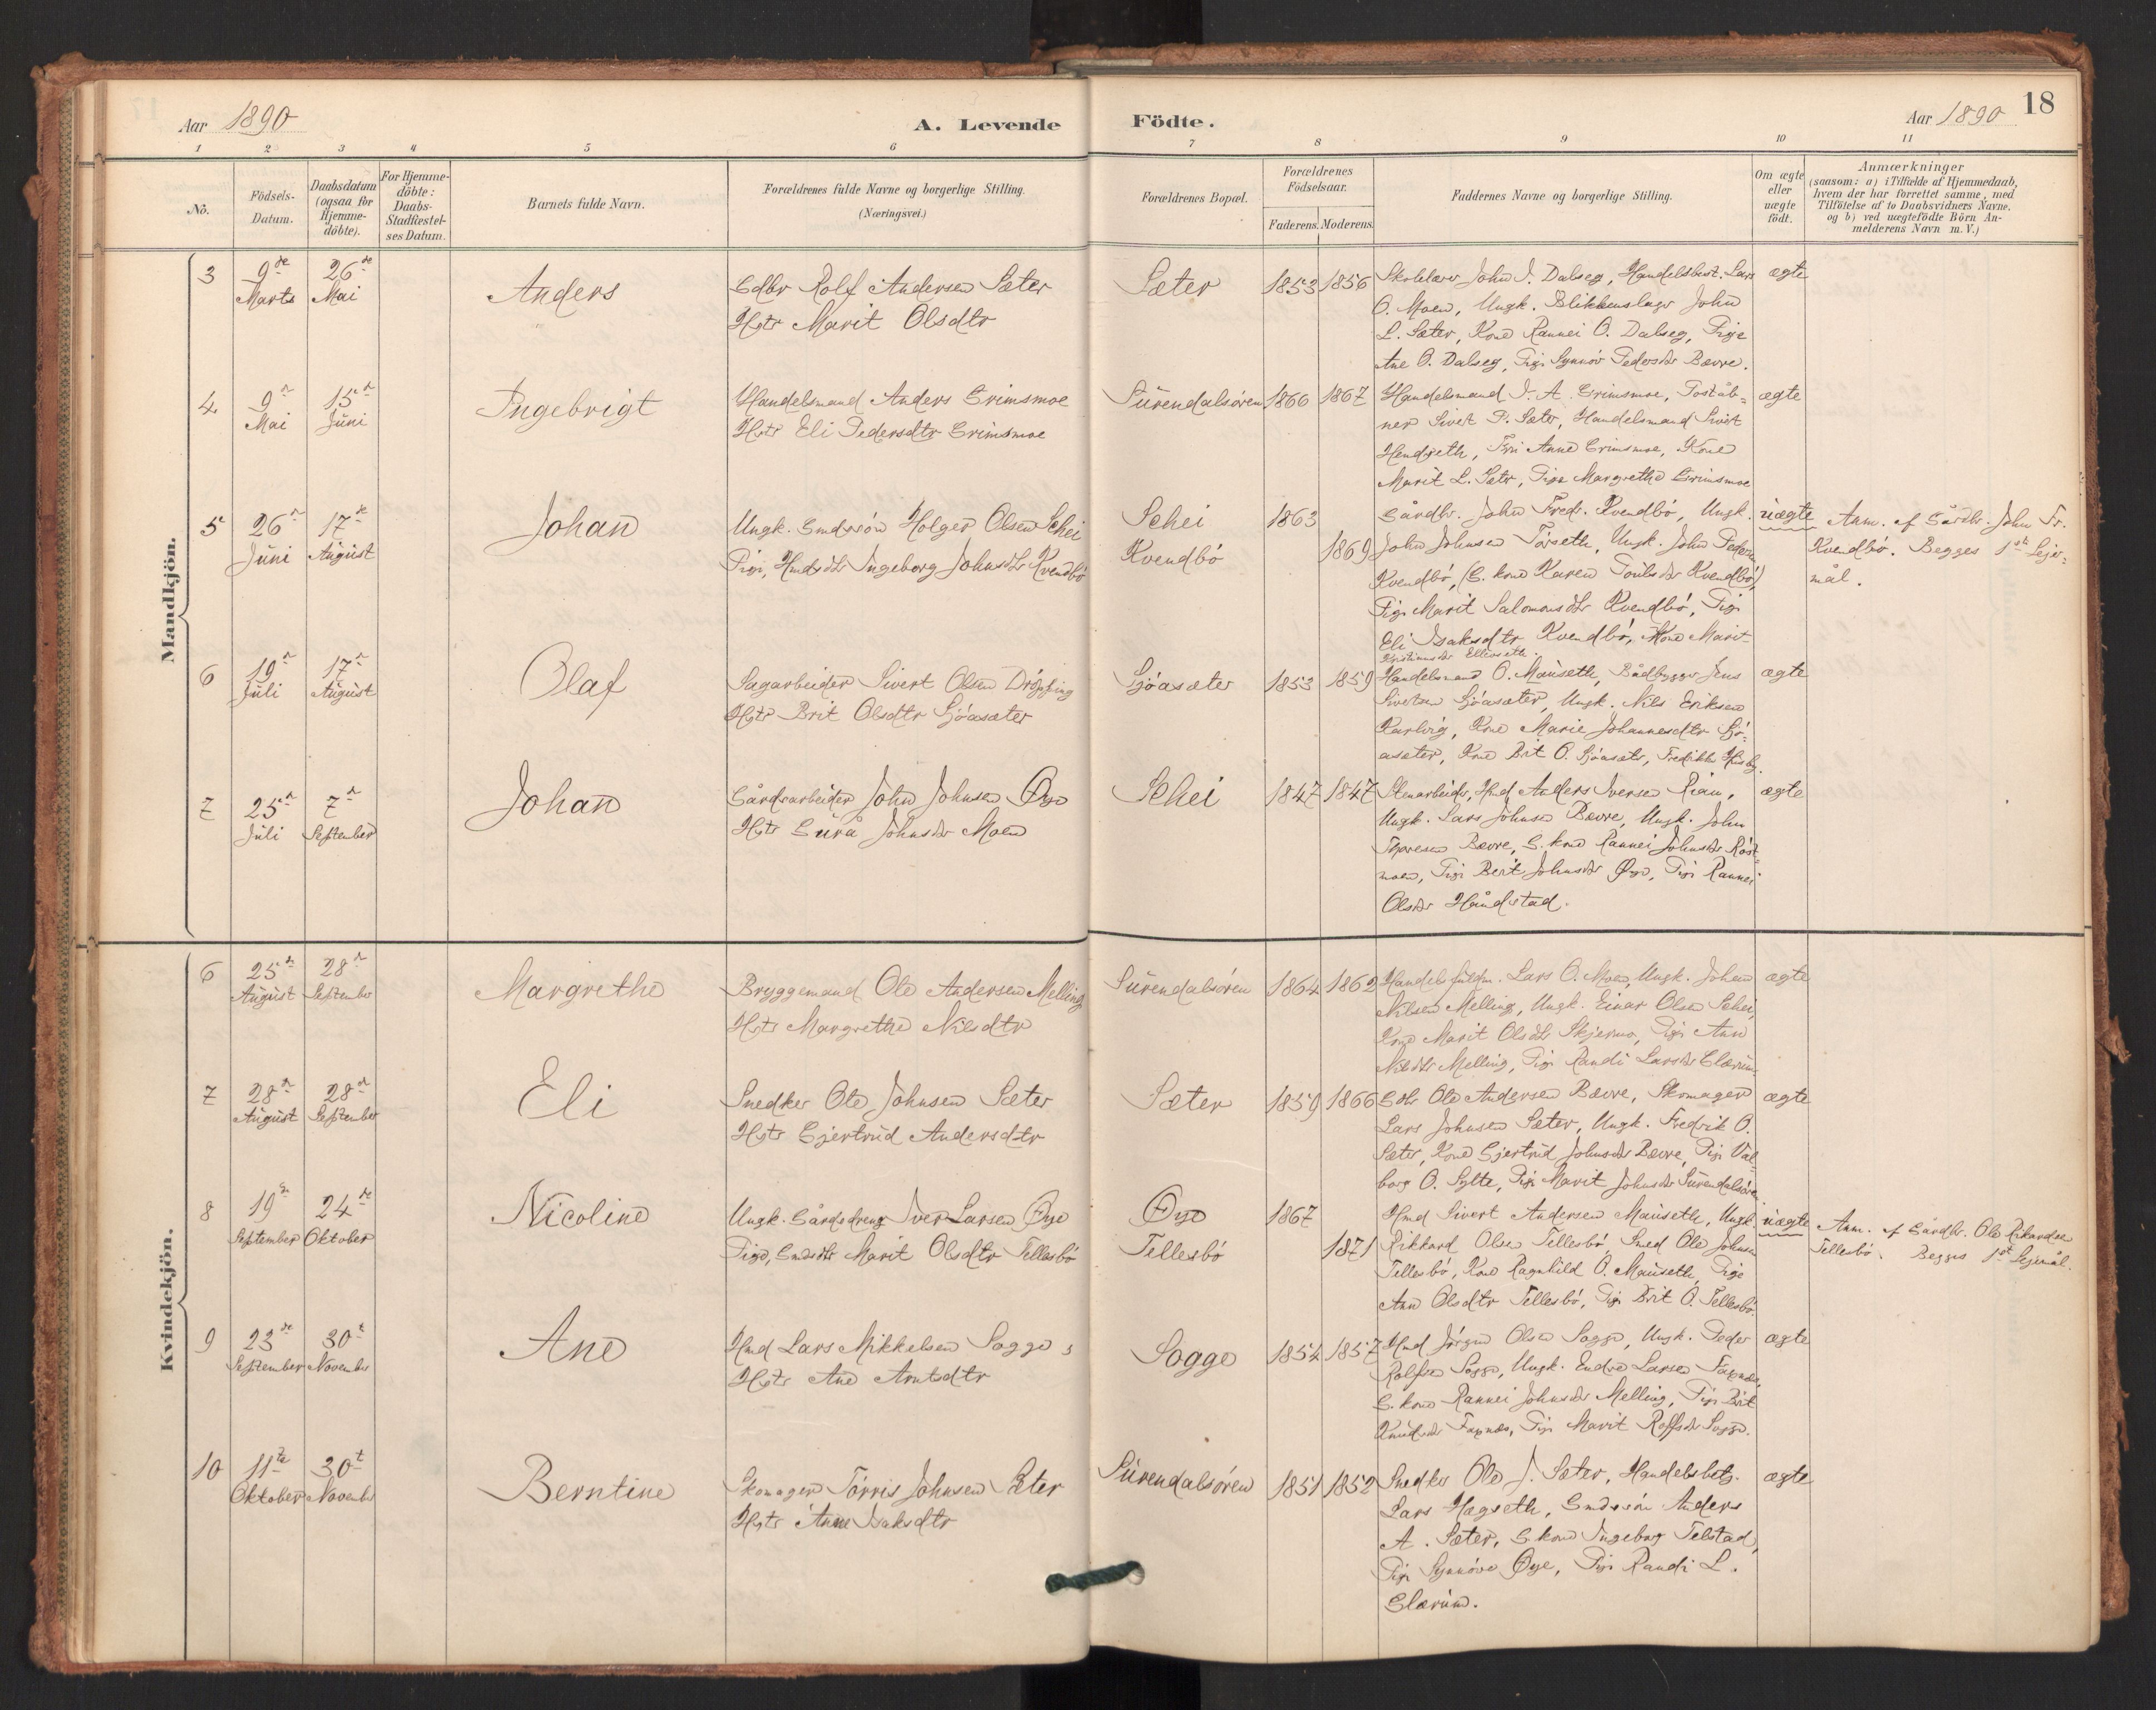 Aar 1890
A. Levende
Födte.
Aar 1890
18
1 2 3 4 5 6 7 8 9 10 11
No.
Födsels-
Datum.
Daabsdatum
(ogsaa for
Hjemme-
döbte).
For Hjemme-
döbte:
Daabs-
Stadfæstel-
ses Datum.
Barnets fulde Navn.
Forældrenes fulde Navne og borgerlige Stilling.
(Næringsvei.)
Forældrenes Bopæl.
Forældrenes
Födselsaar.
Faderens. Moderens.
Faddernes Navne og borgerlige Stilling.
Om ægte
eller
uægte
födt.
Anmærkninger
(saasom: a) i Tilfælde af Hjemmedaab,
hvem der har forrettet samme, med
Tilföielse af to Daabsvidners Navne.
og b) ved uægtefödte Börn An-
melderens Navn m. V.)
Mandkjön.
3
9de
Marts
26de
Mai
Anders
Gdbr Rolf Andersen Sæter
Hstr Marit Olsdtr
Sæter
1853 1856
Skolelærer John J. Dalseg, Handelsbest. Lars
O. Moen, Ungk. Blikkenslager John
L. Sæter, Kone Rannei O. Dalseg, Pige
Ane O. Dalseg, Pige Synnöv Pedersdtr Bævre.
ægte
4
9n
Mai
15n
Juni
Ingebrigt
Handelsmand Anders Grimsmoe
Hstr Eli Pedersdtr Grimsmoe
Surendalsören
1866 1867
Handelsmand J. A. Grimsmoe, Poståb-
ner Sivert P. Sæter, Handelsmand Sivert
Hendseth, Frü Anne Grimsmoe, Kone
Marit L. Sæter, Pige Margrethe Grimsmoe
ægte
5
26n
Juni
17de
August
Johan
Ungk. Gmdssön Holger Olsen Schei
Pige, Hmdsdtr Ingeborg Johnsdtr Kvendbö
Schei
Kvendbö
1863
1869
Gårdbr. John Fredr. Kvendbö, Ungk.
John Johnsen Törseth, Ungk. John Pedersen
Kvendbö, (G. kone Karen Poulsdtr Kvendbö),
Pige Marit Salomonsdtr Kvendbö, Pige
Eli Isaksdtr Kvendbö, Kone Marit
Kristiansdtr Ellevseth.
uægte
Anm. af Gårdbr. John Fr.
Kvendbö. Begges 1ste Lejer-
mål.
6
19n
Juli
17n
August
Olaf
Sagarbeider Sivert Olsen Dröpping
Hstr Brit Olsdtr Sjöasæter
Sjöasæter
1853 1859
Handelsmand O. Mauseth, Bådbygger Jens
Sivertsen Sjöasæter, Ungk. Nils Eriksen
Karlvig, Kone Marie Johannesdtr Sjö-
asæter, Kone Brit O. Sjöasæter, Fredrikke Husby.
ægte
7
25n
Juli
7n
September
Johan
Gårdsarbeider John Johnsen Öye
Hstr Gurå Johnsdtr Moen
Schei
1847 1847
Stenarbeider, Hmd Anders Iversen Rian,
Ungk. Lars Johnsen Bævre, Ungk. John
Thoresen Bævre, G. kone Rannei Johnsdtr Röst-
moen, Pige Berit Johnsdtr Öye, Pige Rannei
Olsdtr Håndstad.
ægte
Kvindekjön.
6
25de
August
28n
September
Margrethe
Bryggemand Ole Andersen Melling
Hstr Margrethe Nilsdtr
Surendalsören
1864 1862
Handels fuldm. Lars O. Moen, Ungk. Johan
Nilsen Melling, Ungk. Einar Olsen Schei,
Kone Marit Olsdtr Skjermo, Pige Ann
Nilsdtr Melling, Pige Randi Larsdtr Glærum.
ægte
7
28n
August
28n
September
Eli
Snedker Ole Johnsen Sæter
Hstr Gjertrud Andersdtr
Sæter
1859 1866
Gdbr Ole Andersen Bævre, Skomager
Lars Johnsen Sæter, Ungk. Fredrik O.
Sæter, Kone Gjertrud Johnsdtr Bævre, Pige Val-
borg O. Sylte, Pige Marit Johnsdtr Surendalsören.
ægte
8
19de
September
24de
Oktober
Nicoline
Ungk. Gårdsdreng Iver Larsen Öye
Pige, Gmdsdtr Marit Olsdtr Tellesbö
Öye
Tellesbö
1867
1871
Hmd Sivert Andersen Mauseth, Ungk.
Rikkard Olsen Tellesbö, Smed Ole Johnsen
Tellesbö, Kone Ragnhild O. Mauseth, Pige
Ann Olsdtr Tellesbö, Pige Brit O. Tellesbö.
uægte
Anm. af Gårdbr. Ole Rikardsen
Tellesbö. Begges 1ste Lejermål.
9
23de
September
30t
November
Ane
Hmd Lars Mikkelsen Sogge
Hstr Ane Arntsdtr
Sogge
1854 1857
Hmd Jörgen Olsen Sogge, Ungk. Peder
Rolfsen Sogge, Ungk. Endre Larsen Faxnæs,
G. kone Rannei Johnsdtr Melling, Pige Brit
Knudsdtr Faxnæs, Pige Marit Rolfsdtr Sogge.
ægte
10
11te
Oktober
30t
November
Berntine
Skomager Törris Johnsen Sæter
Hstr Anne Isaksdtr
Surendalsören
1851 1852
Snedker Ole J. Sæter, Handelsbetj.
Lars Hagseth, Gmdssön Anders
A. Sæter, G. kone Ingeborg Telstad,
Pige Synnöve Öye, Pige Randi L.
Glærum.
ægte